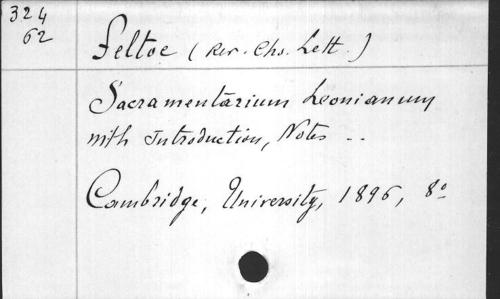 324
62
Feltoe (Rev. Chs. Lett.)
Sacramentarium Leonianum
with Introduction, Notes --
Cambridge, University, 1896, 8º